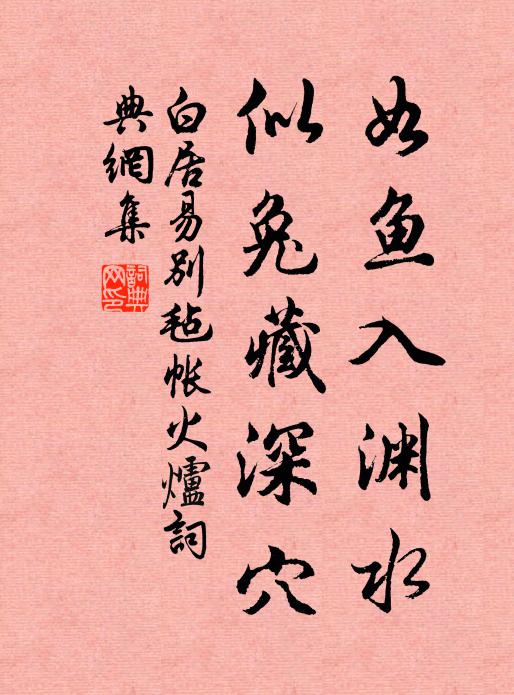 如鱼入渊水
似兔藏深穴
白居易别毡帐火爐詞
典網集
詞典网印